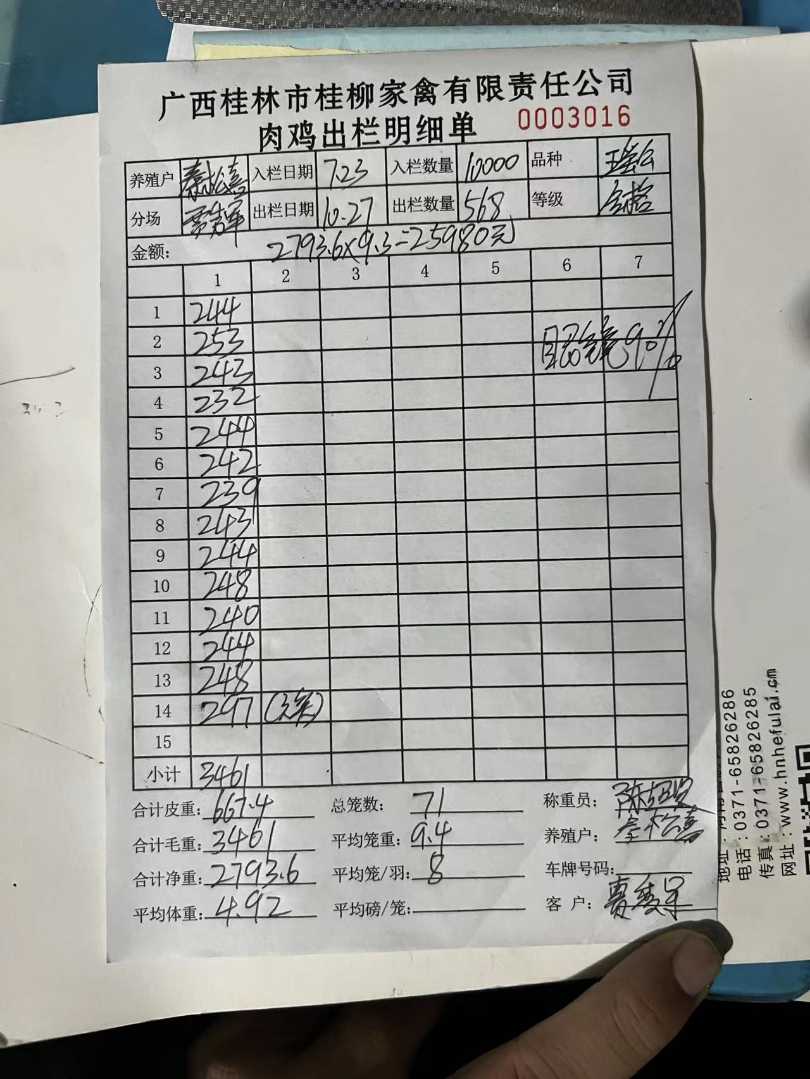 广西桂林市桂柳家禽有限责任公司
肉鸡出栏明细单 0003016
养殖户 入栏日期 7.23 入栏数量 10000 品种
分场 出栏日期 10.27 出栏数量 568 等级
金额: 2793.6×9.3=25980元
1 2 3 4 5 6 7
1 244
2 253
3 243
4 232
5 244
6 242
7 239
8 243
9 244
10 248
11 240
12 244
13 248
14 297
15
小计 3461
90%
合计皮重: 667.4 总笼数: 71 称重员:
合计毛重: 3461 平均笼重: 9.4 养殖户:
合计净重: 2793.6 平均笼/羽: 8 车牌号码:
平均体重: 4.92 平均磅/笼: 客 户:
电话: 0371-65826286
传真: 0371-65826285
网址: www.hnhefulai.cn